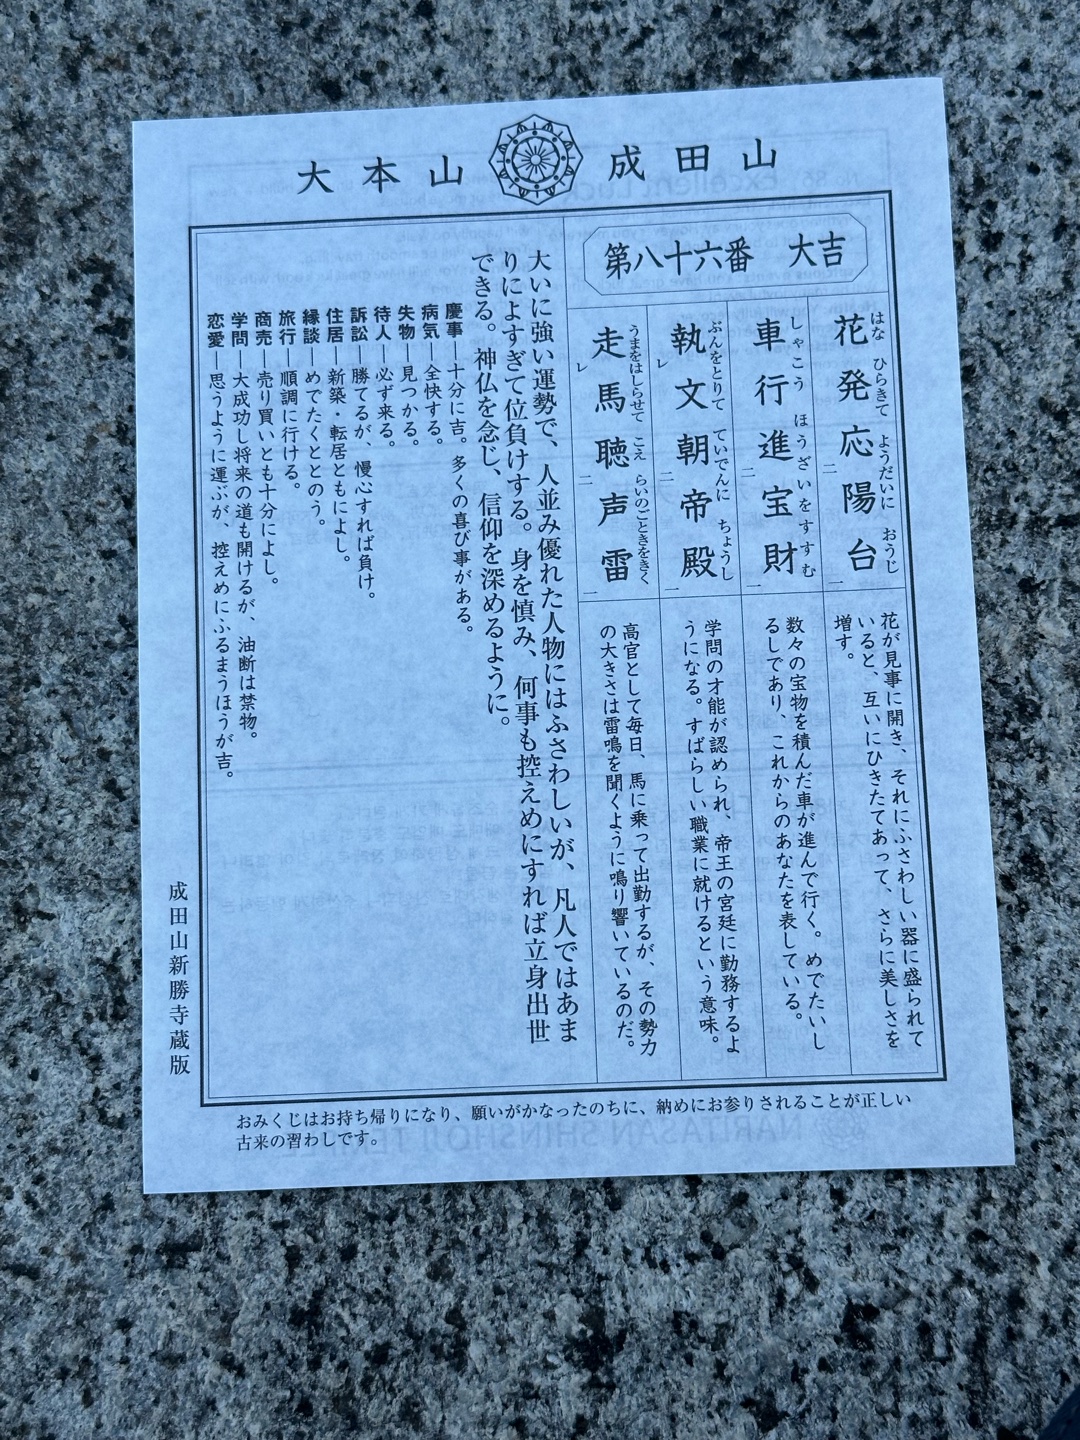 大本山 成田山
第八十六番 大吉
花発応陽台
はな ひらきて ようだいに おうじ
二 一
車行進宝財
しゃこう ほうざいをすすむ
二 一
執文朝帝殿
ぶんをとりて ていでんに ちょうし
レ 二 一
走馬聴声雷
うまをはしらせて こえ らいのごときをきく
レ 二 一
花が見事に開き、それにふさわしい器に盛られて
いると、互いにひきたてあって、さらに美しさを
増す。
数々の宝物を積んだ車が進んで行く。めでたいし
るしであり、これからのあなたを表している。
学問の才能が認められ、帝王の宮廷に勤務するよ
うになる。すばらしい職業に就けるという意味。
高官として毎日、馬に乗って出勤するが、その勢力
の大きさは雷鳴を聞くように鳴り響いているのだ。
大いに強い運勢で、人並み優れた人物にはふさわしいが、凡人ではあま
りによすぎて位負けする。身を慎み、何事も控えめにすれば立身出世
できる。神仏を念じ、信仰を深めるように。
慶事―十分に吉。多くの喜び事がある。
病気―全快する。
失物―見つかる。
待人―必ず来る。
訴訟―勝てるが、慢心すれば負け。
住居―新築・転居ともによし。
縁談―めでたくととのう。
旅行―順調に行ける。
商売―売り買いとも十分によし。
学問―大成功し将来の道も開けるが、油断は禁物。
恋愛―思うように運ぶが、控えめにふるまうほうが吉。
成田山新勝寺蔵版
おみくじはお持ち帰りになり、願いがかなったのちに、納めにお参りされることが正しい
古来の習わしです。